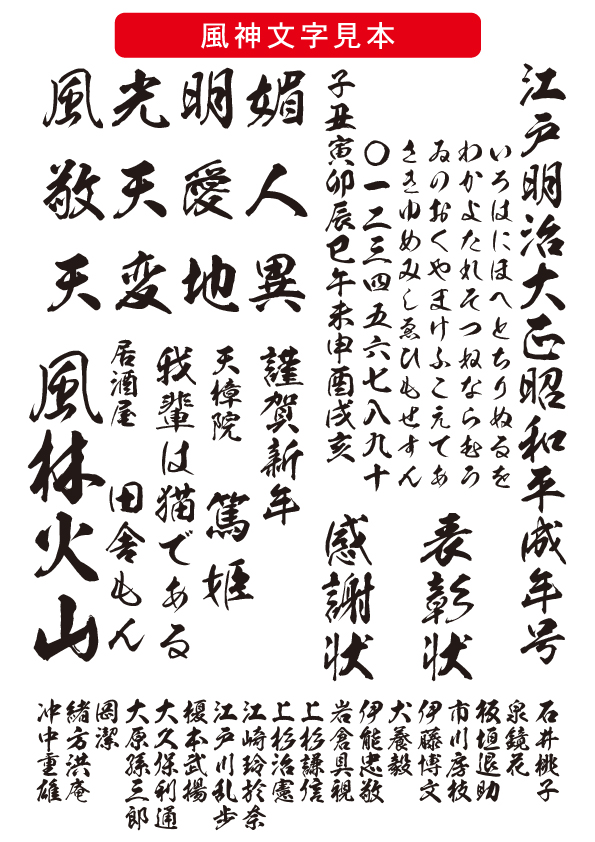 風神文字見本
江戸明治大正昭和平成年号
いろはにほへとちりぬるを
わかよたれそつねならむう
ゐのおくやまけふこえてあ
さきゆめみしゑひもせすん
〇一二三四五六七八九十
子丑寅卯辰巳午未申酉戌亥
表彰状
感謝状
媚人異
明愛地
光天変
風敬天
謹賀新年
天樟院 篤姫
我輩は猫である
居酒屋 田舎もん
風林火山
石井桃子
泉鏡花
板垣退助
市川房枝
伊藤博文
犬養毅
伊能忠敬
岩倉具視
上杉謙信
上杉治憲
江崎玲於奈
江戸川乱歩
榎本武揚
大久保利通
大原孫三郎
岡潔
緒方洪庵
沖中重雄